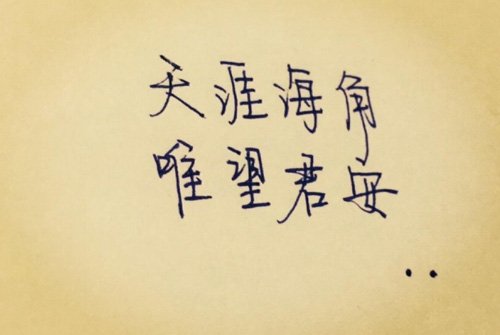 天涯海角
唯望君安
..